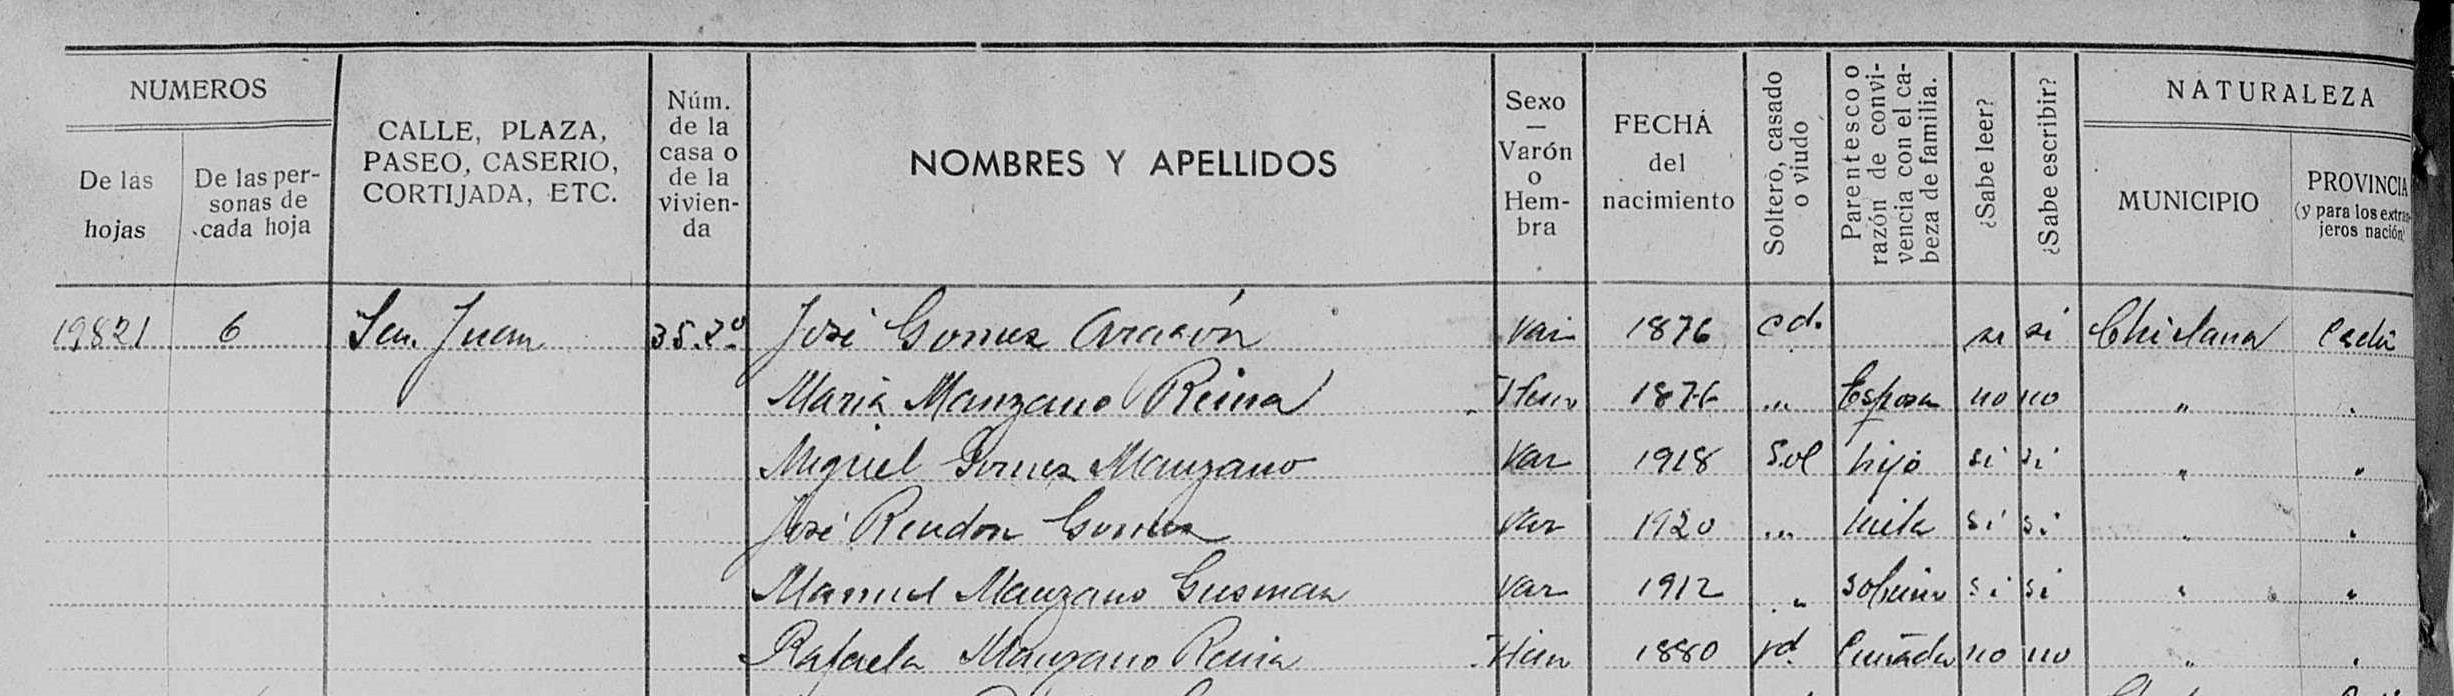 NUMEROS
De las hojas
De las personas de cada hoja
CALLE, PLAZA, PASEO, CASERIO, CORTIJADA, ETC.
Núm. de la casa o de la vivienda
NOMBRES Y APELLIDOS
Sexo — Varón o Hembra
FECHA del nacimiento
Soltero, casado o viudo
Parentesco o razón de convivencia con el cabeza de familia.
¿Sabe leer?
¿Sabe escribir?
NATURALEZA
MUNICIPIO
PROVINCIA (y para los extranjeros nación)
19821 6 San Juan 35.2º José Gomez Aragón Var 1876 cd. si si Chiclana Cadiz
Maria Manzano Reina Hem 1876 " Esposa no no " "
Miguel Gomez Manzano Var 1918 Sol hijo si si " "
José Rendon Gomez Var 1920 " nieto si si " "
Manuel Manzano Gusman Var 1912 " sobrino si si " "
Rafaela Manzano Reina Hem 1880 vd. Cuñada no no " "